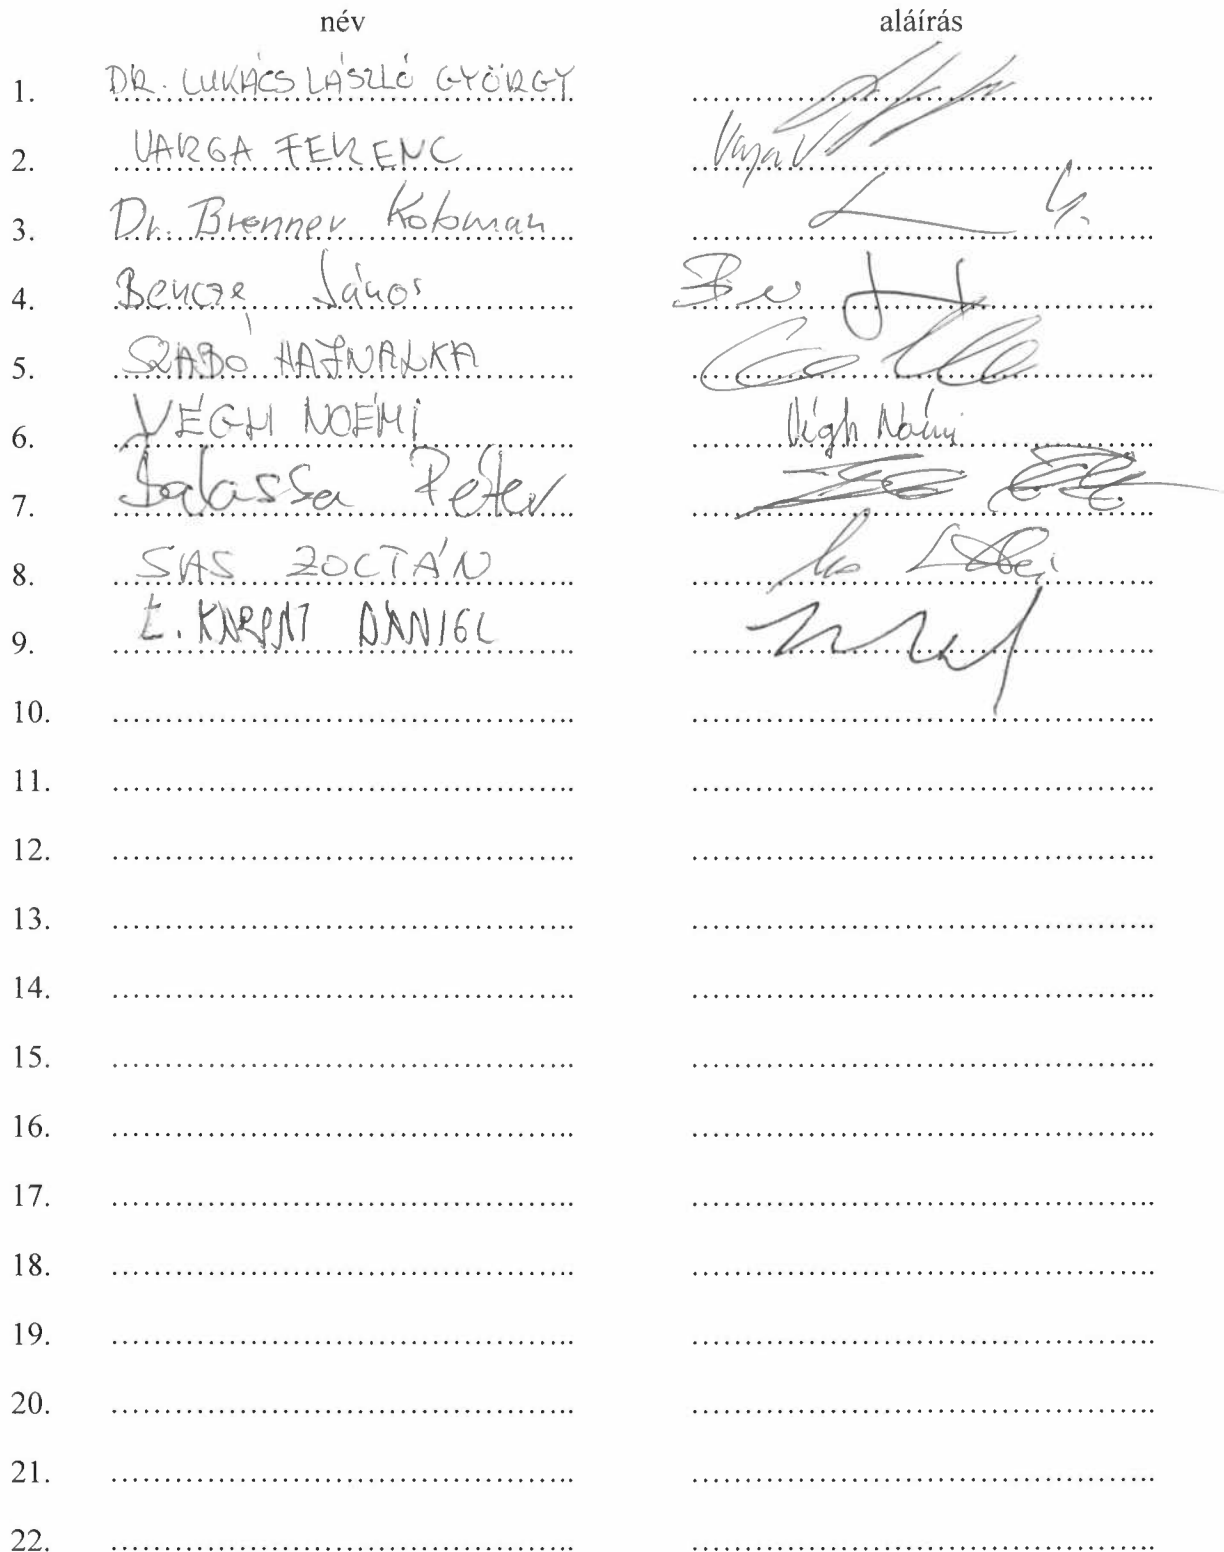 név aláírás
1. DR. LUKÁCS LÁSZLÓ GYÖRGY
2. VARGA FERENC
3. Dr. Brenner Koloman
4. Bencze János
5. SZABÓ HAJNALKA
6. VÉGH NOÉMI Végh Noémi
7. Balassa Péter
8. SAS ZOLTÁN
9. Z. KÁRPÁT DÁNIEL
10.
11.
12.
13.
14.
15.
16.
17.
18.
19.
20.
21.
22.